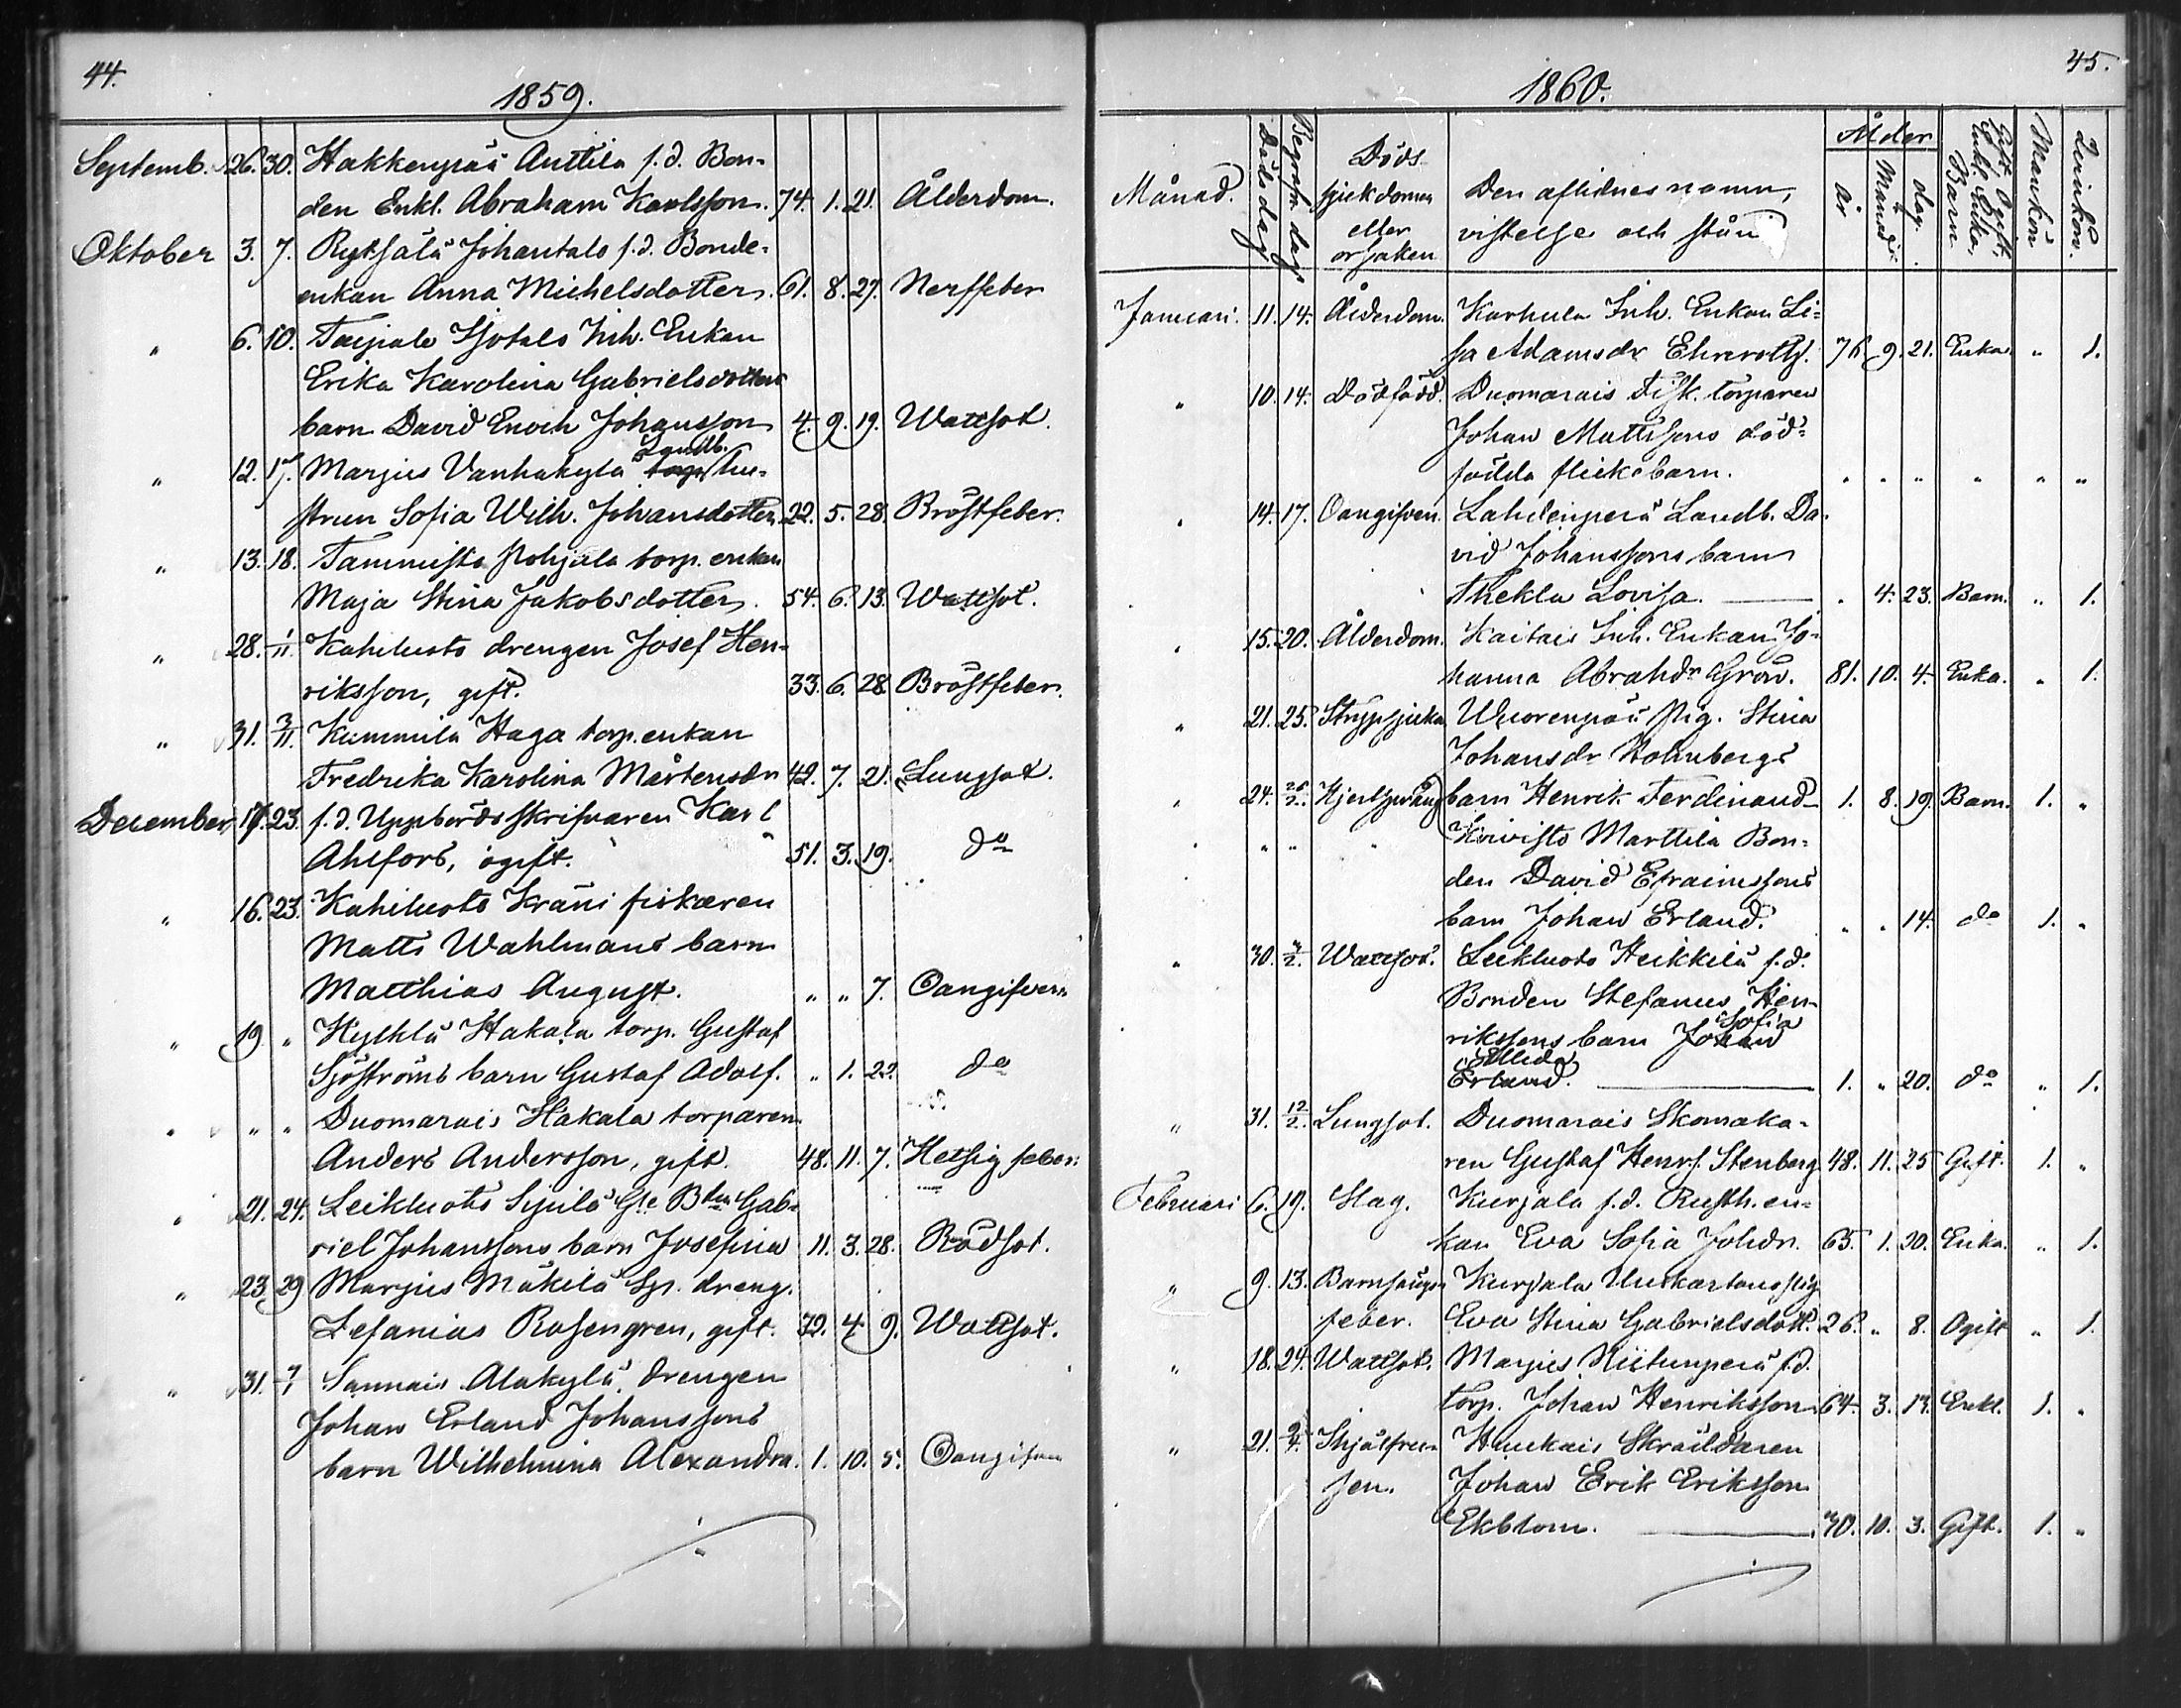 44.
1859.
Septemb. 26. 30. Hakkenpää Anttila f.d. Bon-
den Enkl. Abraham Karlsson. 74. 1. 21. Ålderdom.
Oktober 3. 7. Rytsälä Juhantalo f.d. Bonde-
enkan Anna Michelsdotter. 61. 8. 27. Nerffeber
" 6. 10. Taipale Isotalo Inh. Enkan
Erika Karolina Gabrielsdotters
barn David Enoch Johansson 4. 9. 19. Wattsot.
Landb.
" 12. 17. Marjus Vanhakylä torp. hu-
strun Sofia Wilh. Johansdotter. 22. 5. 28. Bröstfeber.
" 13. 18. Tammisto Pohjala torp. enkan
Maja Stina Jakobsdotter. 54. 6. 13. Wattsot.
" 28. 1/11. Kahiluoto drengen Josef Hen-
riksson, gift. 33. 6. 28 Bröstfeber.
" 31. 3/11. Kummila Haga torp.enkan
Fredrika Karolina Mårtensdr 42. 7. 21. Lungsot.
December 17. 23. f.d. Uppbördsskrifvaren Karl
Ahlfors, ogift. 51. 3. 19. do
" 16. 23. Kahiluoto Kräni fiskaren
Matts Wahlmans barn
Matthias August. " " 7. Oangifven
" 19 " Hylkilä Hakala torp. Gustaf
Sjöströms barn Gustaf Adolf. " 1. 22. do
" " " Duomarais Hakala torparen
Anders Andersson, gift. 48. 11. 7. Hetsig feber.
" 21. 24. Leikluoto Sipilä Gle Bden Gab-
riel Johanssons barn Josefina 11. 3. 28. Rödsot.
" 23. 29 Marjus Mäkilä Sp. dreng.
Zefanias Rosengren, gift. 72. 4. 9. Wattsot.
" 31. 7/1 Sannais Alakylä drengen
Johan Erland Johanssons
barn Wilhelmina Alexandra. 1. 10. 5. Oangifven
45.
1860.
Månad. Döds dag Begrafn. dag Döds sjukdomen eller orsaken Den aflidnes namn, vistelse och stånd Ålder År Månad. dag. Gift, Ogift, Enkl. Enka, Barn Mankön Qvinkön.
Januari. 11. 14. Ålderdom. Karhula Inh. Enkan Li-
sa Adamsdr Ehrroths. 76 9. 21. Enka. " 1.
" 10. 14. Dödfödd. Duomarais Fisk. torparen
Johan Mattssons död-
födda flickebarn. " " " " " "
" 14. 17. Oangifven. Lahdenperä Landb. Da-
vid Johanssons barn
Thekla Lovisa. " 4. 23. Barn. " 1.
" 15. 20. Ålderdom. Kaitais Inh. Enkan Jo-
hanna Abrahdr Grön. 81. 10. 4. Enka. " 1.
" 21. 25. Strypsjuka Wuorenpää pig. Stina
Johansdr Holmbergs
" 24. /2. Hjertsprång barn Henrik Ferdinand 1. 8. 19. Barn. 1. "
" " " " Koivisto Marttila Bon-
den David Efraimssons
barn Johan Erland. " " 14. do 1. "
" 30. 4/2. Wattsot. Leikluoto Heikkilä f.d.
Bonden Stefanus Hen-
Sofia
rikssons barn Johan
Ellida
Erland. 1. " 20. do " 1.
" 31. 12/2. Lungsot. Duomarais Skomaka-
ren Gustaf Henrs. Stenberg 48. 11. 25 Gift. 1. "
Februari 6. 19. Slag. Kurjala f.d. Rusth. en-
kan Eva Sofia Johdr. 65. 1. 20. Enka. " 1.
" 9. 13. Barnsängs Kurjala Uuskartano pig
feber. Eva Stina Gabrielsdott. 26. " 8. Ogift " 1.
" 18. 24. Wattsot. Marjus Niitunperä f.d.
torp. Johan Henriksson. 64. 3. 14. Enkl. 1. "
" 21. 9/4. Ihjälfru- Huukais Skräddaren
sen. Johan Erik Eriksson
Ekblom. 70. 10. 3. Gift. 1. "